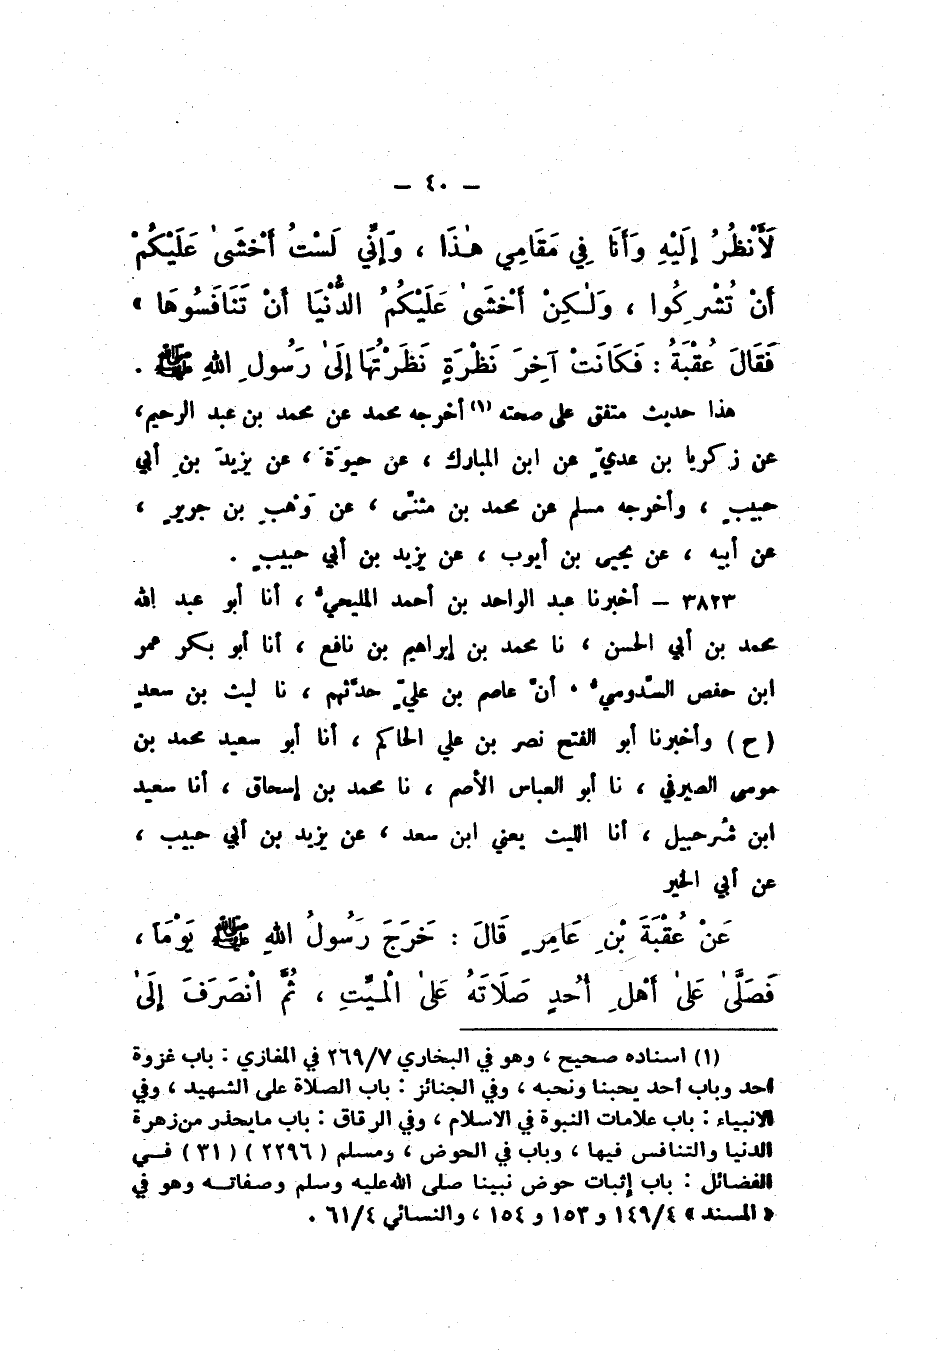 — ٤٠ —
لَأَنْظُرُ إِلَيْهِ وَأَنَا فِي مَقَامِي هٰذَا ، وَإِنِّي لَسْتُ أَخْشَىٰ عَلَيْكُمْ
أَنْ تُشْرِكُوا ، وَلٰكِنْ أَخْشَىٰ عَلَيْكُمُ الدُّنْيَا أَنْ تَنَافَسُوهَا »
فَقَالَ عُقْبَةُ : فَكَانَتْ آخِرَ نَظْرَةٍ نَظَرْتُهَا إِلَىٰ رَسُولِ اللهِ ﷺ .
هذا حديث متفق على صحته (١) أخرجه محمد عن محمد بن عبد الرحيم،
عن زكريا بن عديٍّ عن ابن المبارك ، عن حيوَةَ ، عن يزيدَ بنِ أبي
حبيبٍ ، وأخرجه مسلم عن محمد بن مثنّى ، عن وَهْبِ بن جريرٍ ،
عن أبيه ، عن يحيى بن أيوب ، عن يزيد بن أبي حبيبٍ .
٣٨٢٣ — أخبرنا عبد الواحد بن أحمد المليحيُّ ، أنا أبو عبد الله
محمد بن أبي الحسن ، نا محمد بن إبراهيم بن نافع ، أنا أبو بكر عمر
ابن حفص السَّدوسيُّ . أنَّ عاصم بن عليٍّ حدَّثهم ، نا ليث بن سعدٍ
(ح) وأخبرنا أبو الفتح نصر بن علي الحاكم ، أنا أبو سعيد محمد بن
موسى الصيرفي ، نا أبو العباس الأصم ، نا محمد بن إسحاق ، أنا سعيد
ابن شُرحبيل ، أنا الليث يعني ابن سعد ، عن يزيد بن أبي حبيب ،
عن أبي الخير
عَنْ عُقْبَةَ بْنِ عَامِرٍ قَالَ : خَرَجَ رَسُولُ اللهِ ﷺ يَوْمَاً ،
فَصَلَّىٰ عَلَىٰ أَهْلِ أُحُدٍ صَلَاتَهُ عَلَىٰ الْمَيِّتِ ، ثُمَّ انْصَرَفَ إِلَىٰ
(١) اسناده صحيح ، وهو في البخاري ٢٦٩/٧ في المغازي : باب غزوة
أحد وباب أحد يحبنا ونحبه ، وفي الجنائز : باب الصلاة على الشهيد ، وفي
الانبياء : باب علامات النبوة في الاسلام ، وفي الرقاق : باب مايحذر من زهرة
الدنيا والتنافس فيها ، وباب في الحوض ، ومسلم (٢٢٩٦) (٣١) فــي
الفضائل : باب إثبات حوض نبينا صلى الله عليه وسلم وصفاتـه وهو في
« المسند » ١٤٩/٤ و ١٥٣ و ١٥٤ ، والنسائي ٦١/٤ .